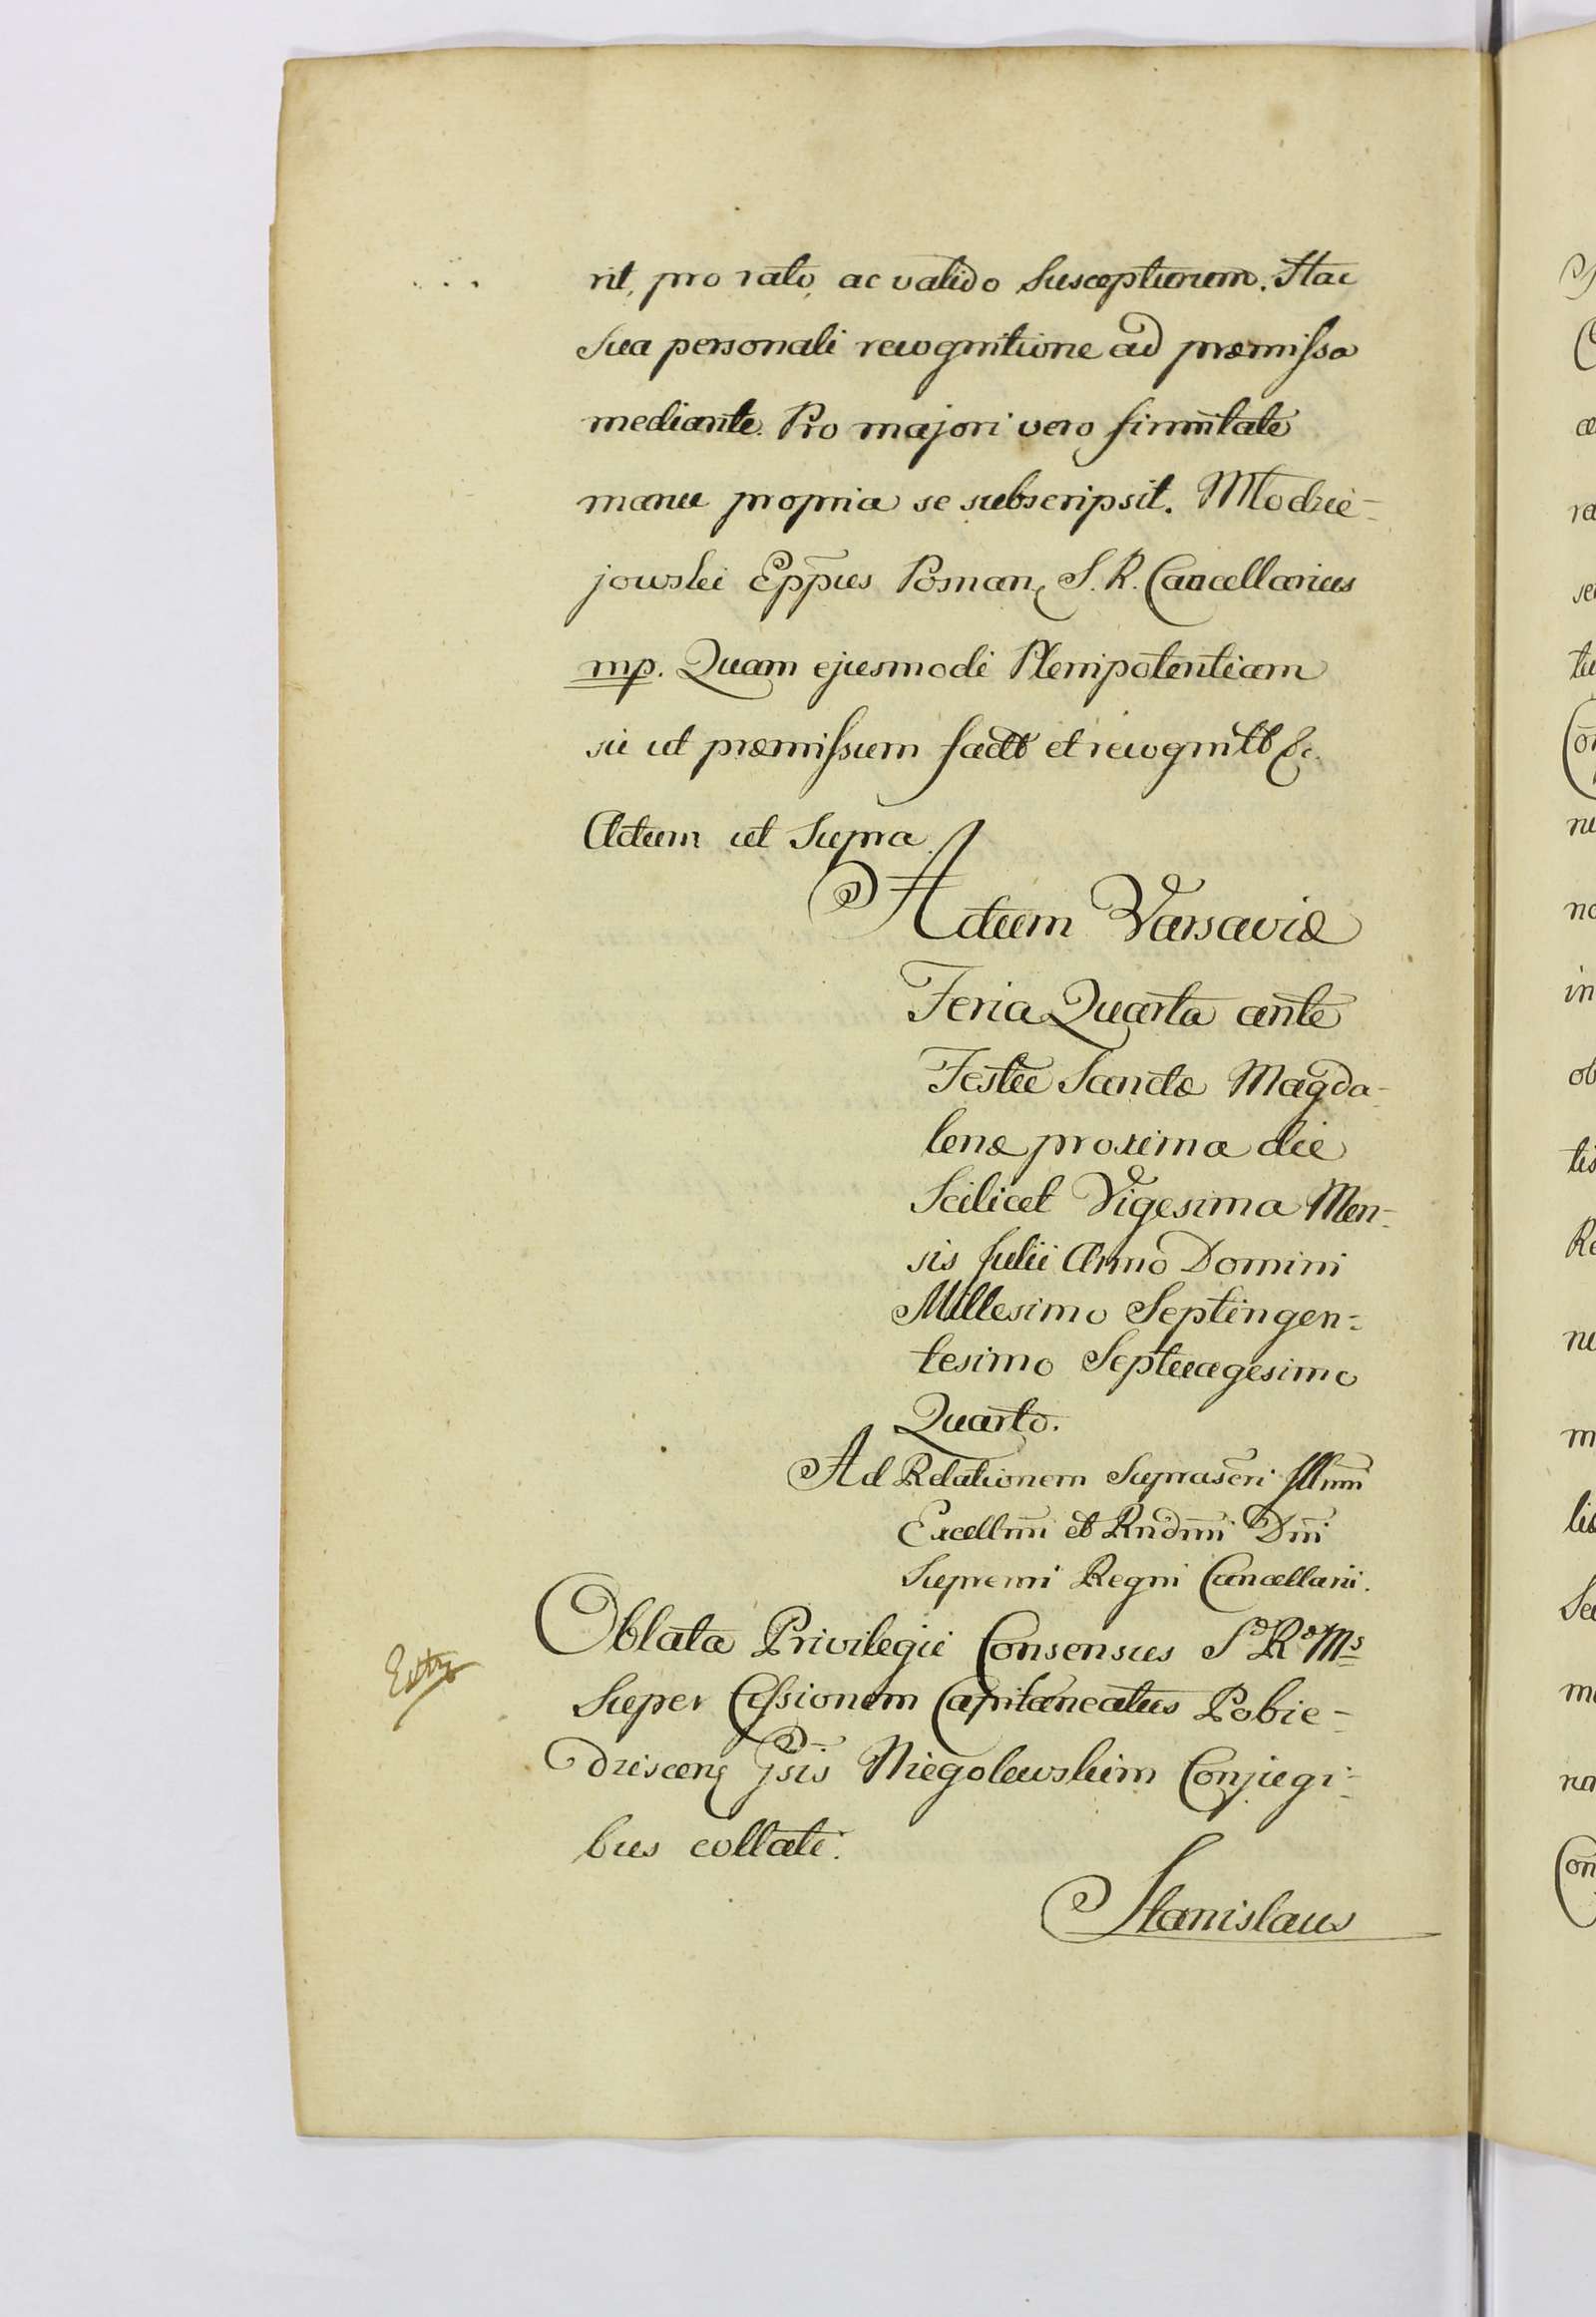 rit, pro rato, ac valido Suscepturum. Hac
Sua personali recognitione ad præmissa
mediante. Pro majori vero firmitate
manu propria se subscripsit. Młodzie-
jowski Eppus Posnan, S. R. Cancellarius
mp. Quam ejusmodi Plenipotentiam
sic ut præmissum factt et recognitt &c.
Actum ut Supra.
Actum Varsaviæ
Feria Quarta ante
Festu Sanctæ Magda-
lenæ proxima die
Scilicet Vigesima Men-
sis Julii Anno Domini
Millesimo Septingen-
tesimo Septuagesimo
Quarto.
Ad Relationem Suprascri Illmi
Excellmi et Rndmi Dni
Supremi Regni Cancellarii.
Oblata Privilegii Consensus S R Ms
Super Cessionem Capitaneatus Pobie-
dziscen, Gsis Niegolewskim Conjugi-
bus collati.
Stanislaus